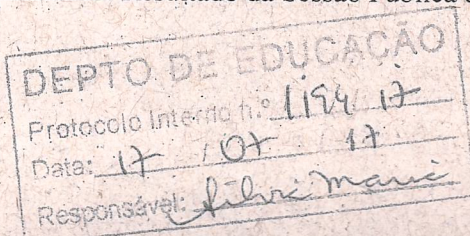 da Sessão Pública
DEPTO DE EDUCAÇÃO
Protocolo Interno n.º 1194/17
Data: 17 / 07 / 17
Responsável: Silvia Maria